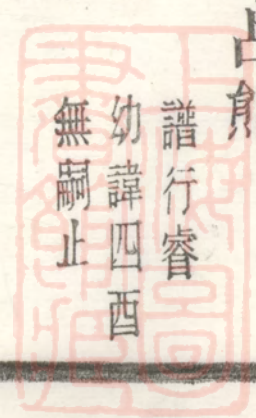 譜行睿
幼諱四酉
無嗣止